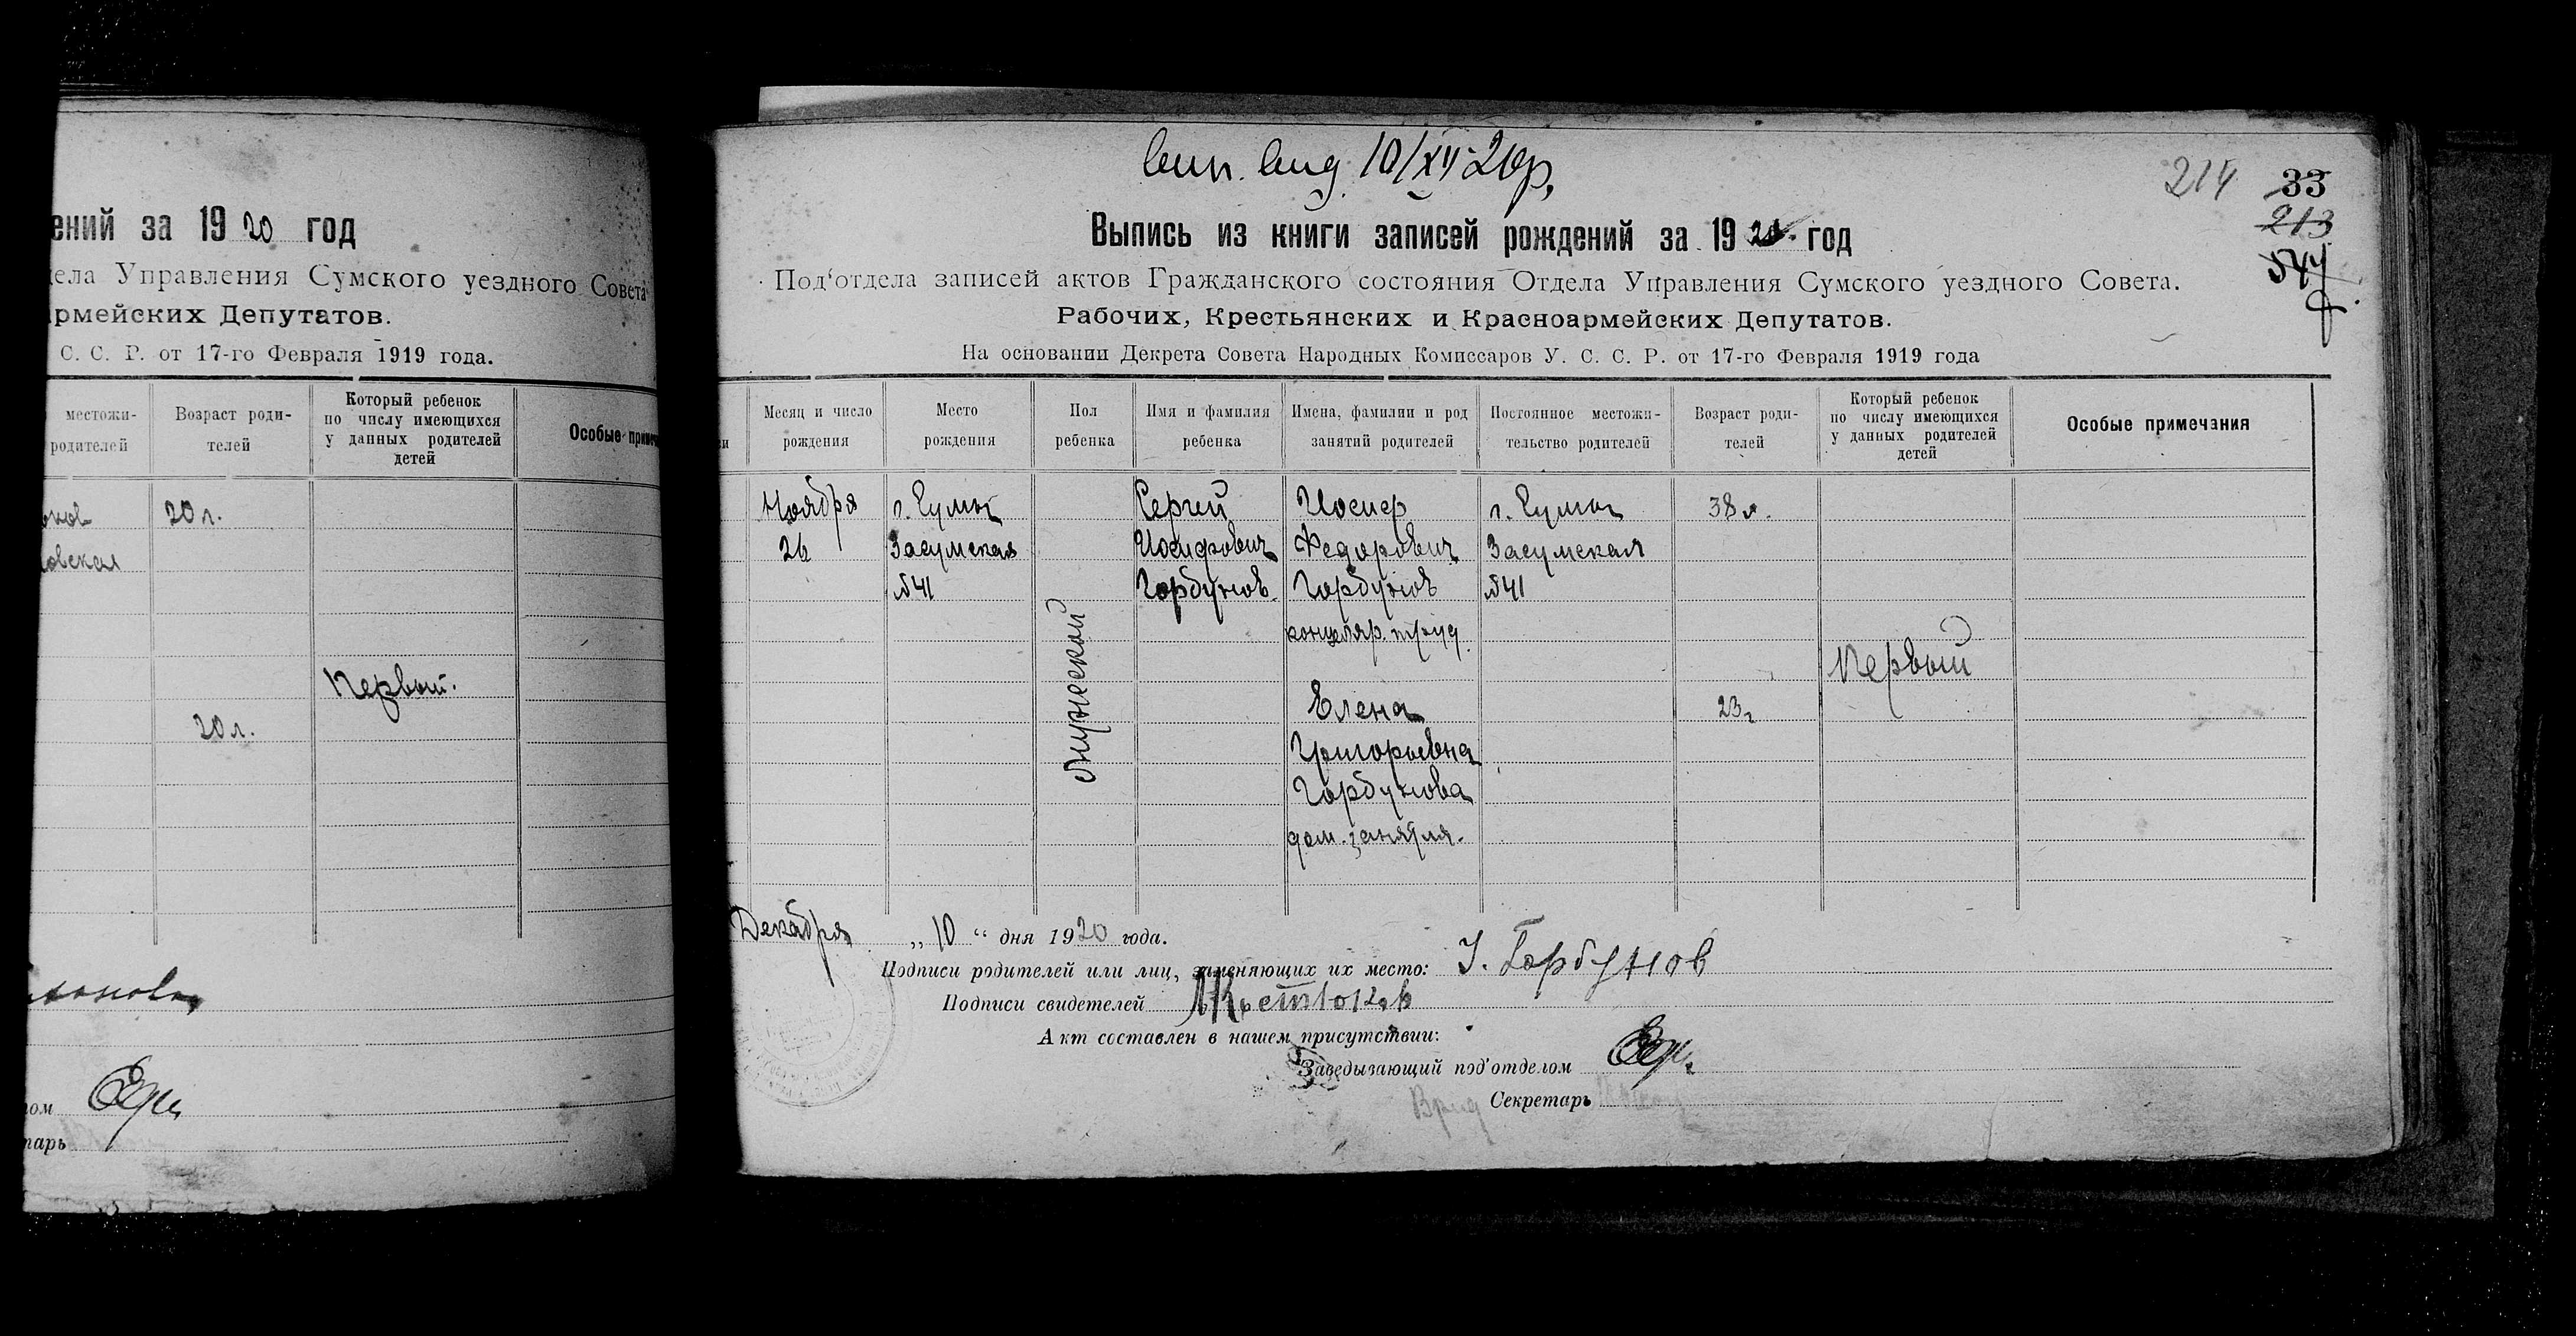 ений за 1920 год
дела Управления Сумского уездного Совета
рмейских Депутатов.
С. С. Р. от 17-го Февраля 1919 года.
местожи-
родителей
Возраст роди-
телей
Который ребенок
по числу имеющихся
у данных родителей
детей
Особые примеч
20 л.
овская
Первый.
20 л.
ом
тарь
вып. выд. 10/XII 20г.
214
33
213
544
Выпись из книги записей рождений за 1920 год
Под'отдела записей актов Гражданского состояния Отдела Управления Сумского уездного Совета.
Рабочих, Крестьянских и Красноармейских Депутатов.
На основании Декрета Совета Народных Комиссаров У. С. С. Р. от 17-го Февраля 1919 года
Месяц и число
рождения
Место
рождения
Пол
ребенка
Имя и фамилия
ребенка
Имена, фамилии и род
занятий родителей
Постоянное местожи-
тельство родителей
Возраст роди-
телей
Который ребенок
по числу имеющихся
у данных родителей
детей
Особые примечания
Ноября
26
г. Сумы
Засумская
№41
мужеской
Сергей
Иосифович
Горбунов.
Иосиф
Федорович
Горбунов
канцеляр. труд.
Елена
Григорьевна
Горбунова
дом. занятия.
г. Сумы
Засумская
№41
38 л.
23 г
Первый
Декабря „10“ дня 1920 года.
Подписи родителей или лиц, заменяющих их место: І. Горбунов
Подписи свидетелей
Акт составлен в нашем присутствии:
Заведывающий под'отделом
Врид Секретарь